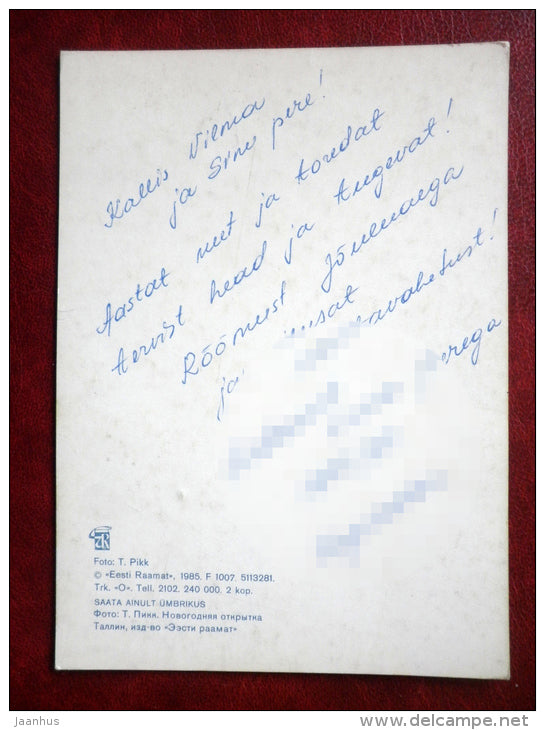 Kallis Vilma
ja Sinu pere!
Aastat uut ja toredat
tervist head ja tugevat!
Rõõmust jõuluaega
ja
vabetust!
erega
Foto: T. Pikk
© «Eesti Raamat», 1985. F 1007. 5113281.
Trk. «O». Tell. 2102. 240 000. 2 kop.
SAATA AINULT ÜMBRIKUS
Фото: Т. Пикк. Новогодняя открытка
Таллин, изд-во «Ээсти раамат»
jaanhus
www.delcampe.net